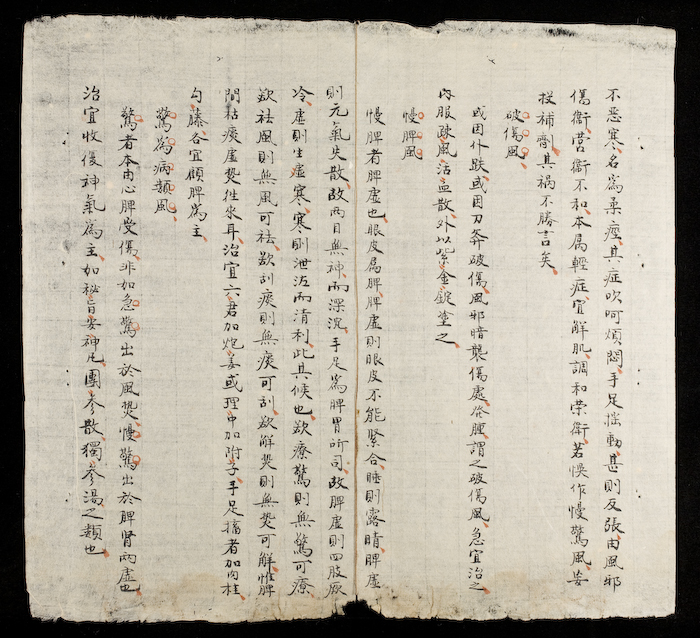 不恶寒名為柔痙其症吹呵煩悶手足揺動甚則反張由風邪
傷衛营衛不和本属輕症宜解肌調和荣衛若悮作慢驚風妄
投補劑其禍不勝言矣
破傷風
或因仆跌或因刀斧破傷風邪暗襲傷處發腫謂之破傷風急宜治之
内服疎風活血散外以紫金錠塗之
慢脾風
慢脾者脾虚也眼皮属脾脾虚則眼皮不能緊合睡則露睛脾虚
則元氣失散故両目無神而深沉手足為脾胃所司故脾虚則四肢厥
冷虚則生虚寒寒則泄泻而清利此其候也欲療驚則無驚可療
欲祛風則無風可祛欲刮痰則無痰可刮欲解热則無热可解惟脾
間枯痰虚热往來耳治宜六君加炮姜或理中加附子手足搐者加肉桂
勾藤各宜顧脾為主
驚為病類風
驚者本由心脾受傷非如急驚出於風热慢驚出於脾腎両虚也
治宜收復神氣為主如秘旨安神丸團参散獨参湯之類也